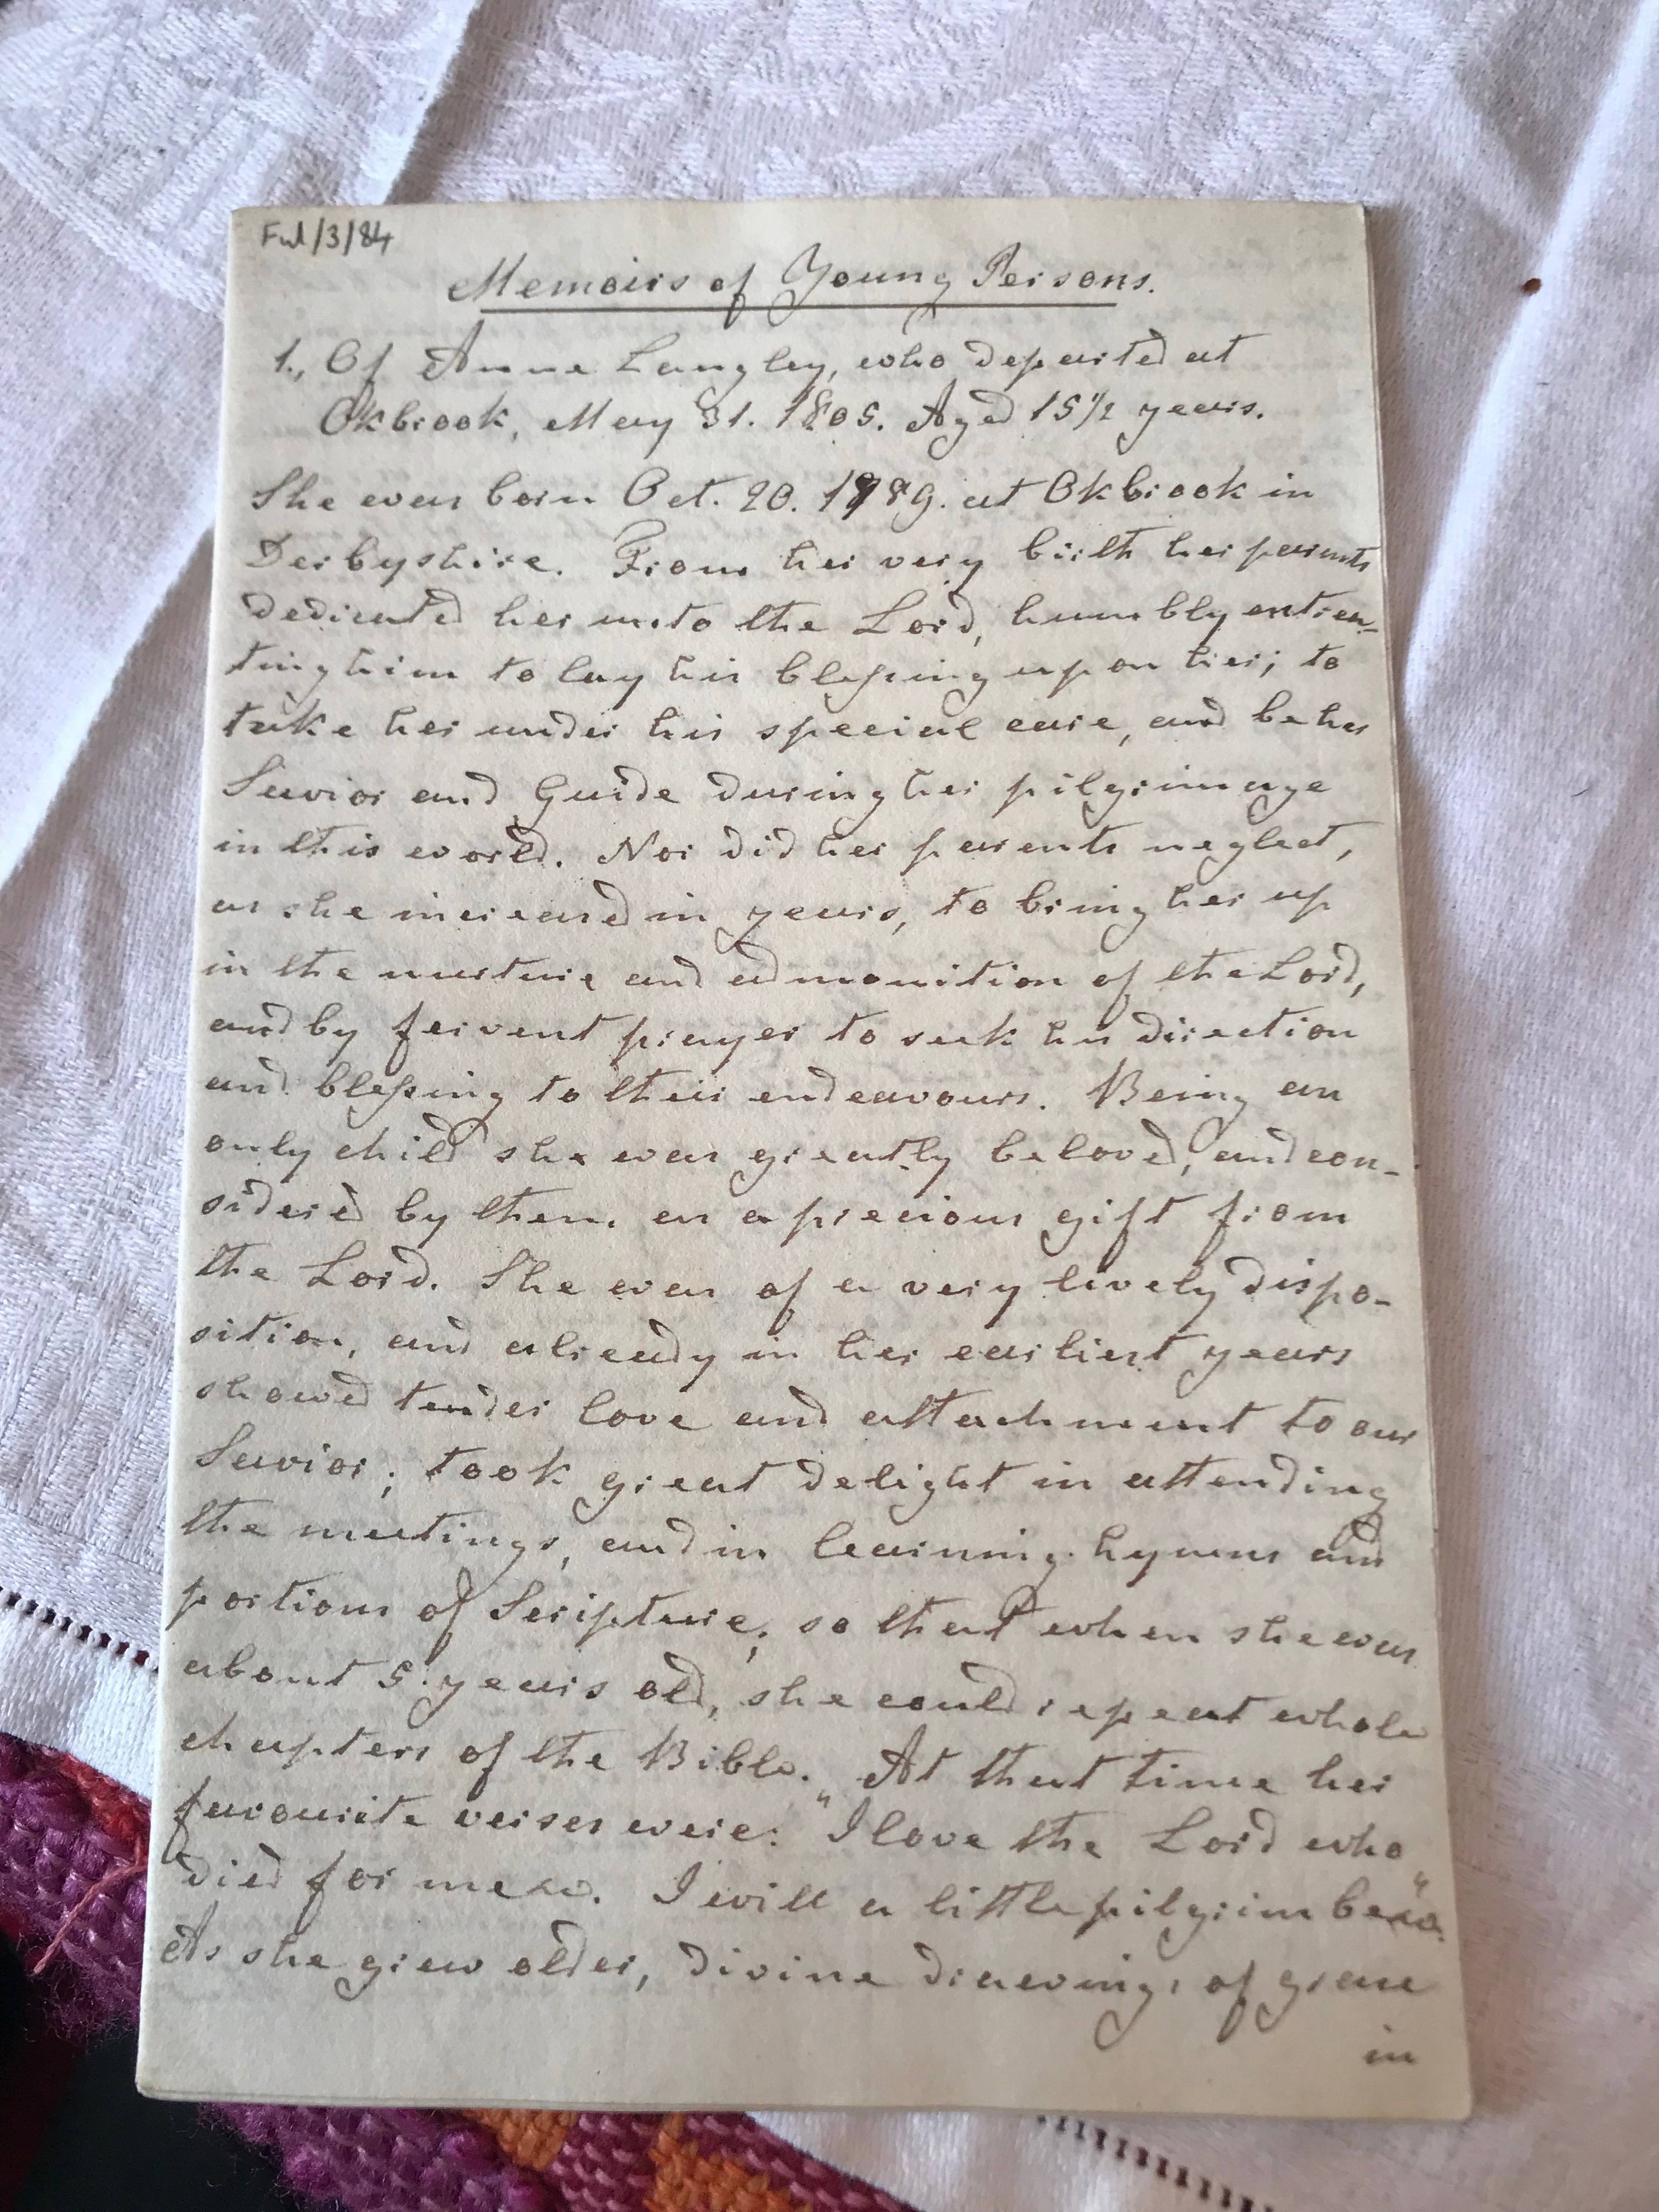 Ful/3/84
Memoirs of Young Persons.
1., Of Anne Langley, who departed at
Okbrook, May 31. 1805. Aged 15 1/2 years.
She was born Oct. 20. 1789. at Okbrook in
Derbyshire. From her very birth her parents
dedicated her unto the Lord, humbly entrea-
ting him to lay his blessing upon her; to
take her under his special care, and be her
Savior and Guide during her pilgrimage
in this world. Nor did her parents neglect,
as she increased in years, to bring her up
in the nurture and admonition of the Lord,
and by fervent prayer to seek his direction
and blessing to their endeavours. Being an
only child she was greatly beloved, and con-
sidered by them as a precious gift from
the Lord. She was of a very lively dispo-
sition, and already in her earliest years
showed tender love and attachment to our
Savior; took great delight in attending
the meetings, and in learning hymns and
portions of Scripture; so that when she was
about 5 years old, she could repeat whole
chapters of the Bible. At that time her
favourite verses were: "I love the Lord who
died for me &c. I will a little pilgrim be &c."
As she grew older, divine drawings of grace
in